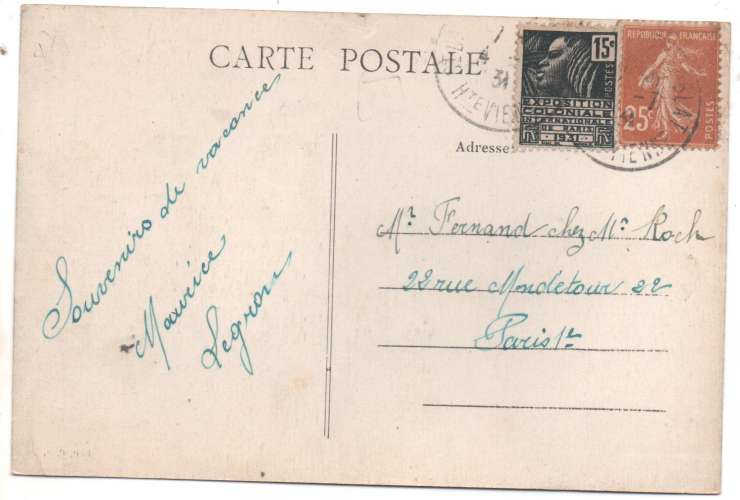 CARTE POSTALE
31
Hte VIEN
15c
POSTES
EXPOSITION
COLONIALE
INTERNATIONALE
DE PARIS
1931
REPUBLIQUE FRANÇAISE
25c
POSTES
VIENNE
Adresse
Souvenirs de vacance
Maurice
Legrou
Mr Fernand chez Mr Koch
22 rue Mondetour 22
Paris 1r